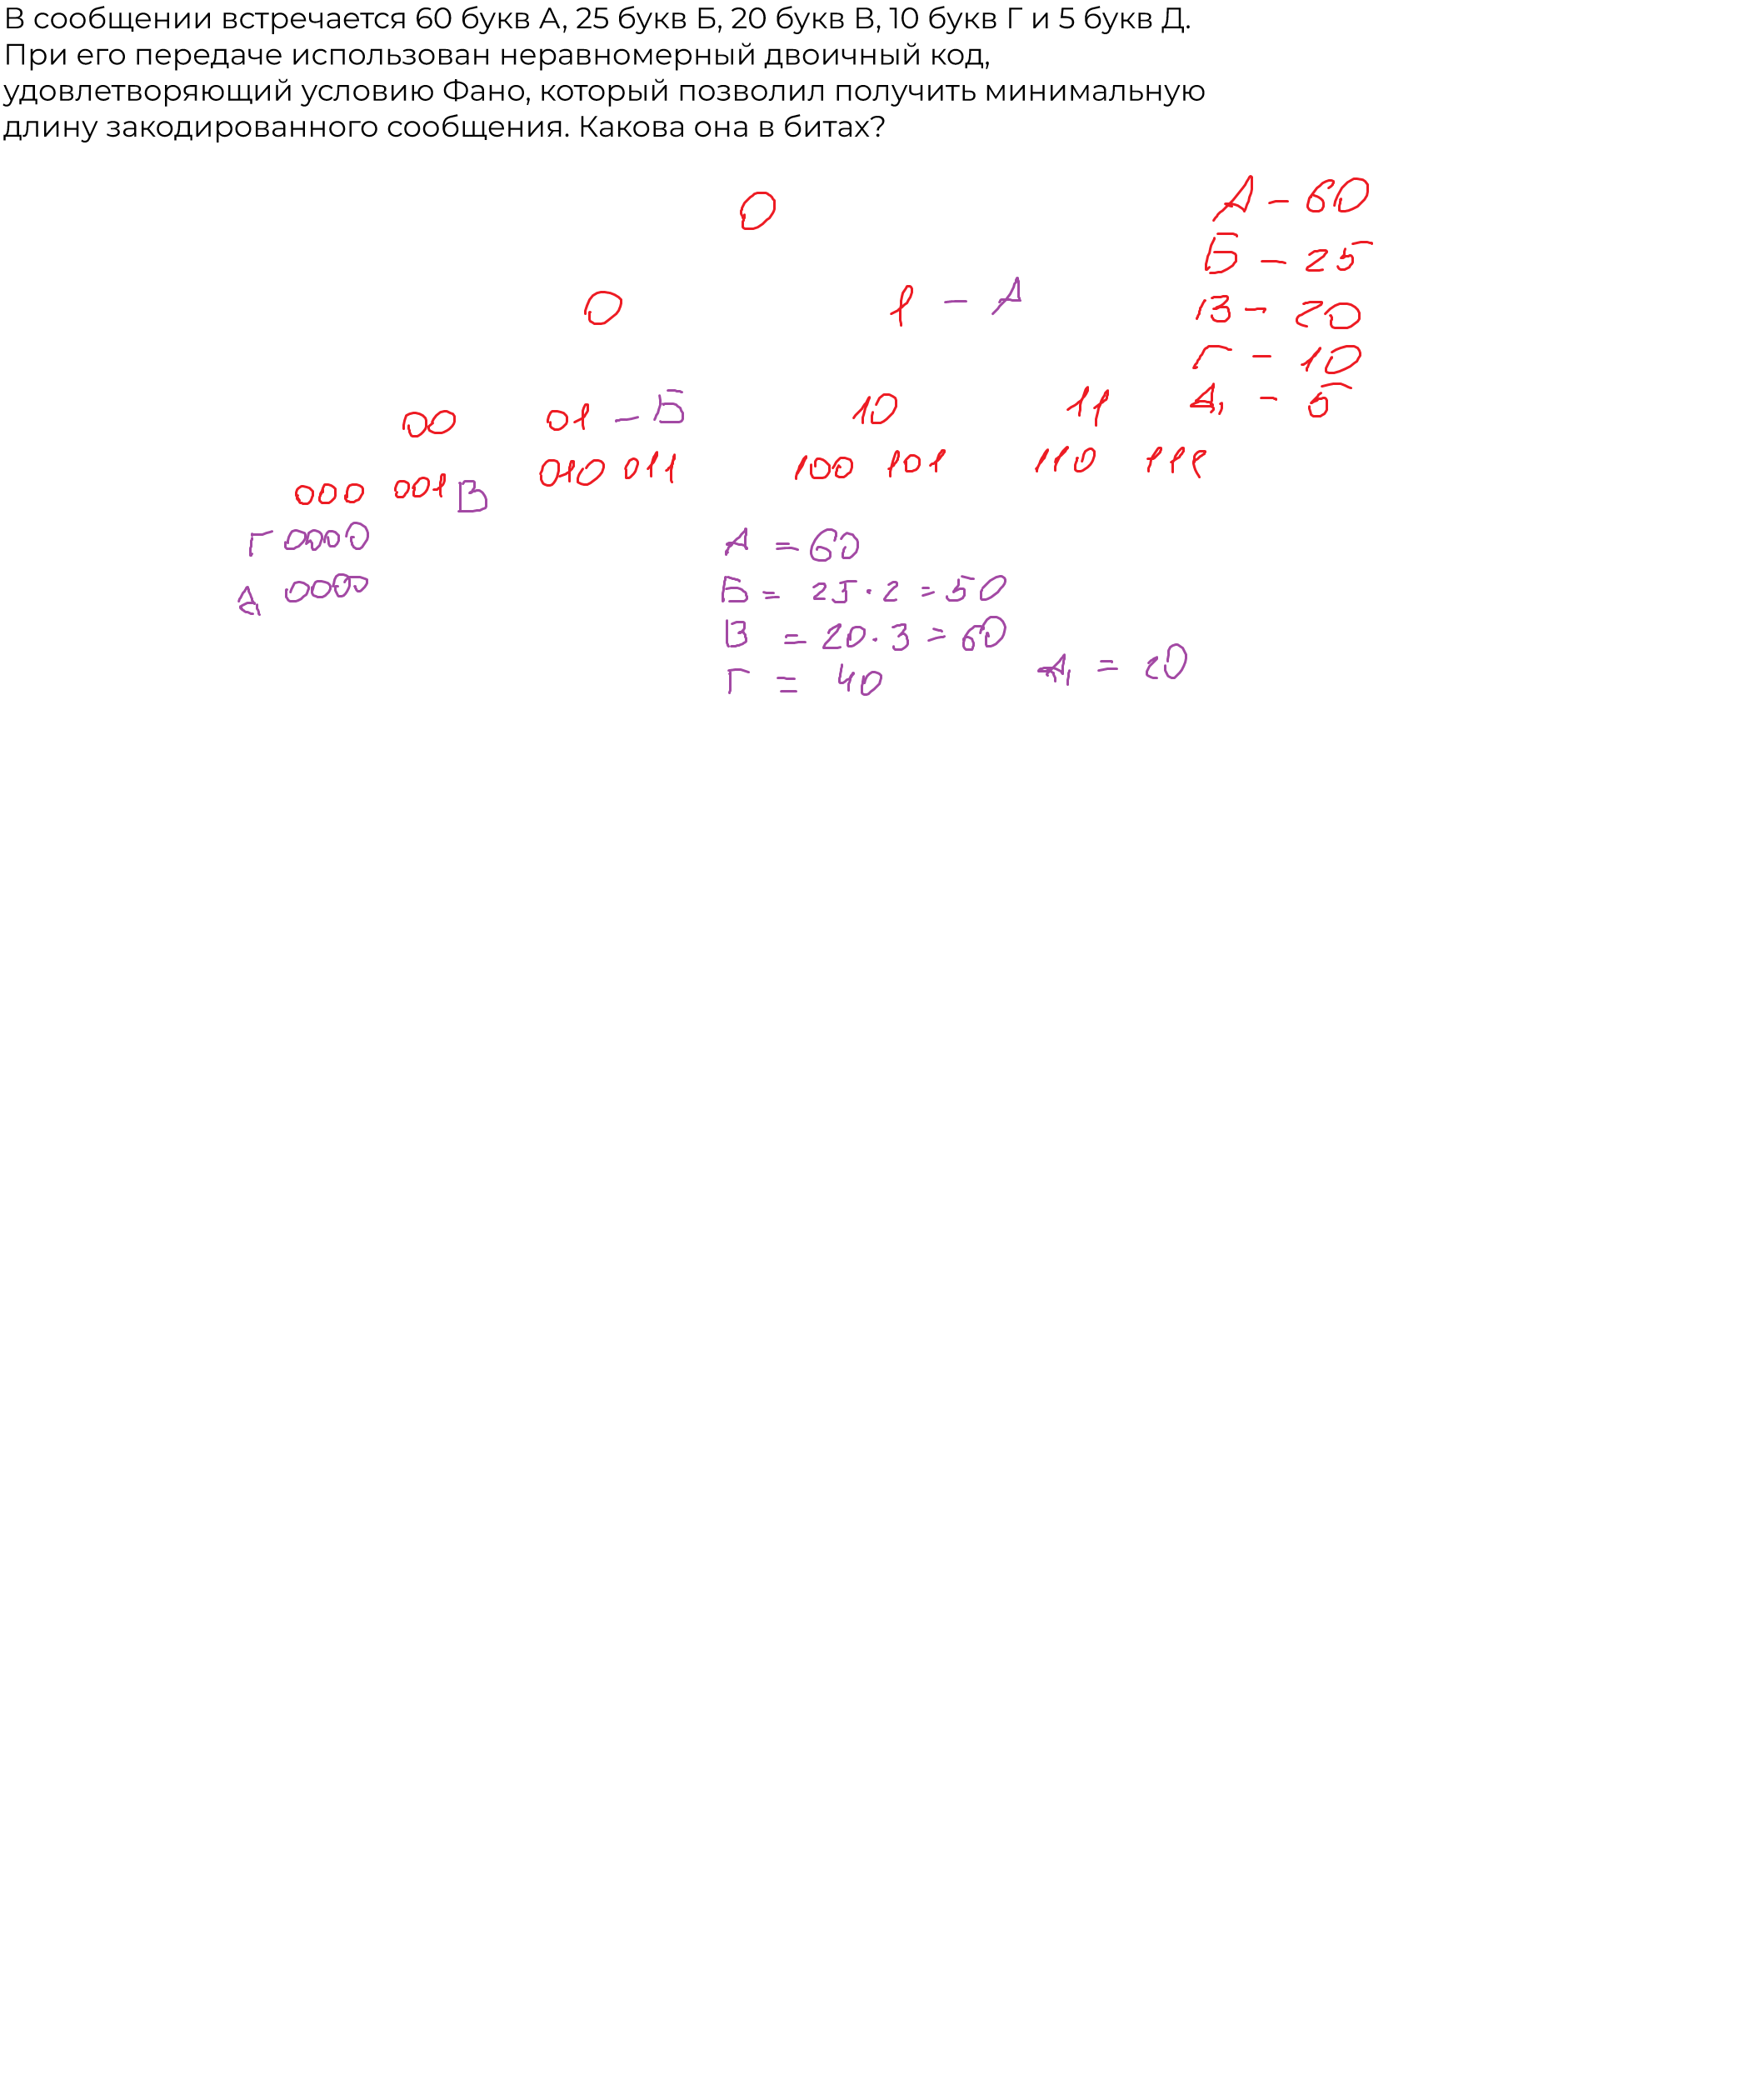 В сообщении встречается 60 букв А, 25 букв Б, 20 букв В, 10 букв Г и 5 букв Д.
При его передаче использован неравномерный двоичный код,
удовлетворяющий условию Фано, который позволил получить минимальную
длину закодированного сообщения. Какова она в битах?
0
А - 60
Б - 25
В - 20
Г - 10
Д - 5
0 1 - А
00 01 - Б 10 11
000 001 В 010 011 100 101 110 111
Г 0000
Д 0000
А = 60
Б = 25 · 2 = 50
В = 20 · 3 = 60
Г = 40 Д = 20